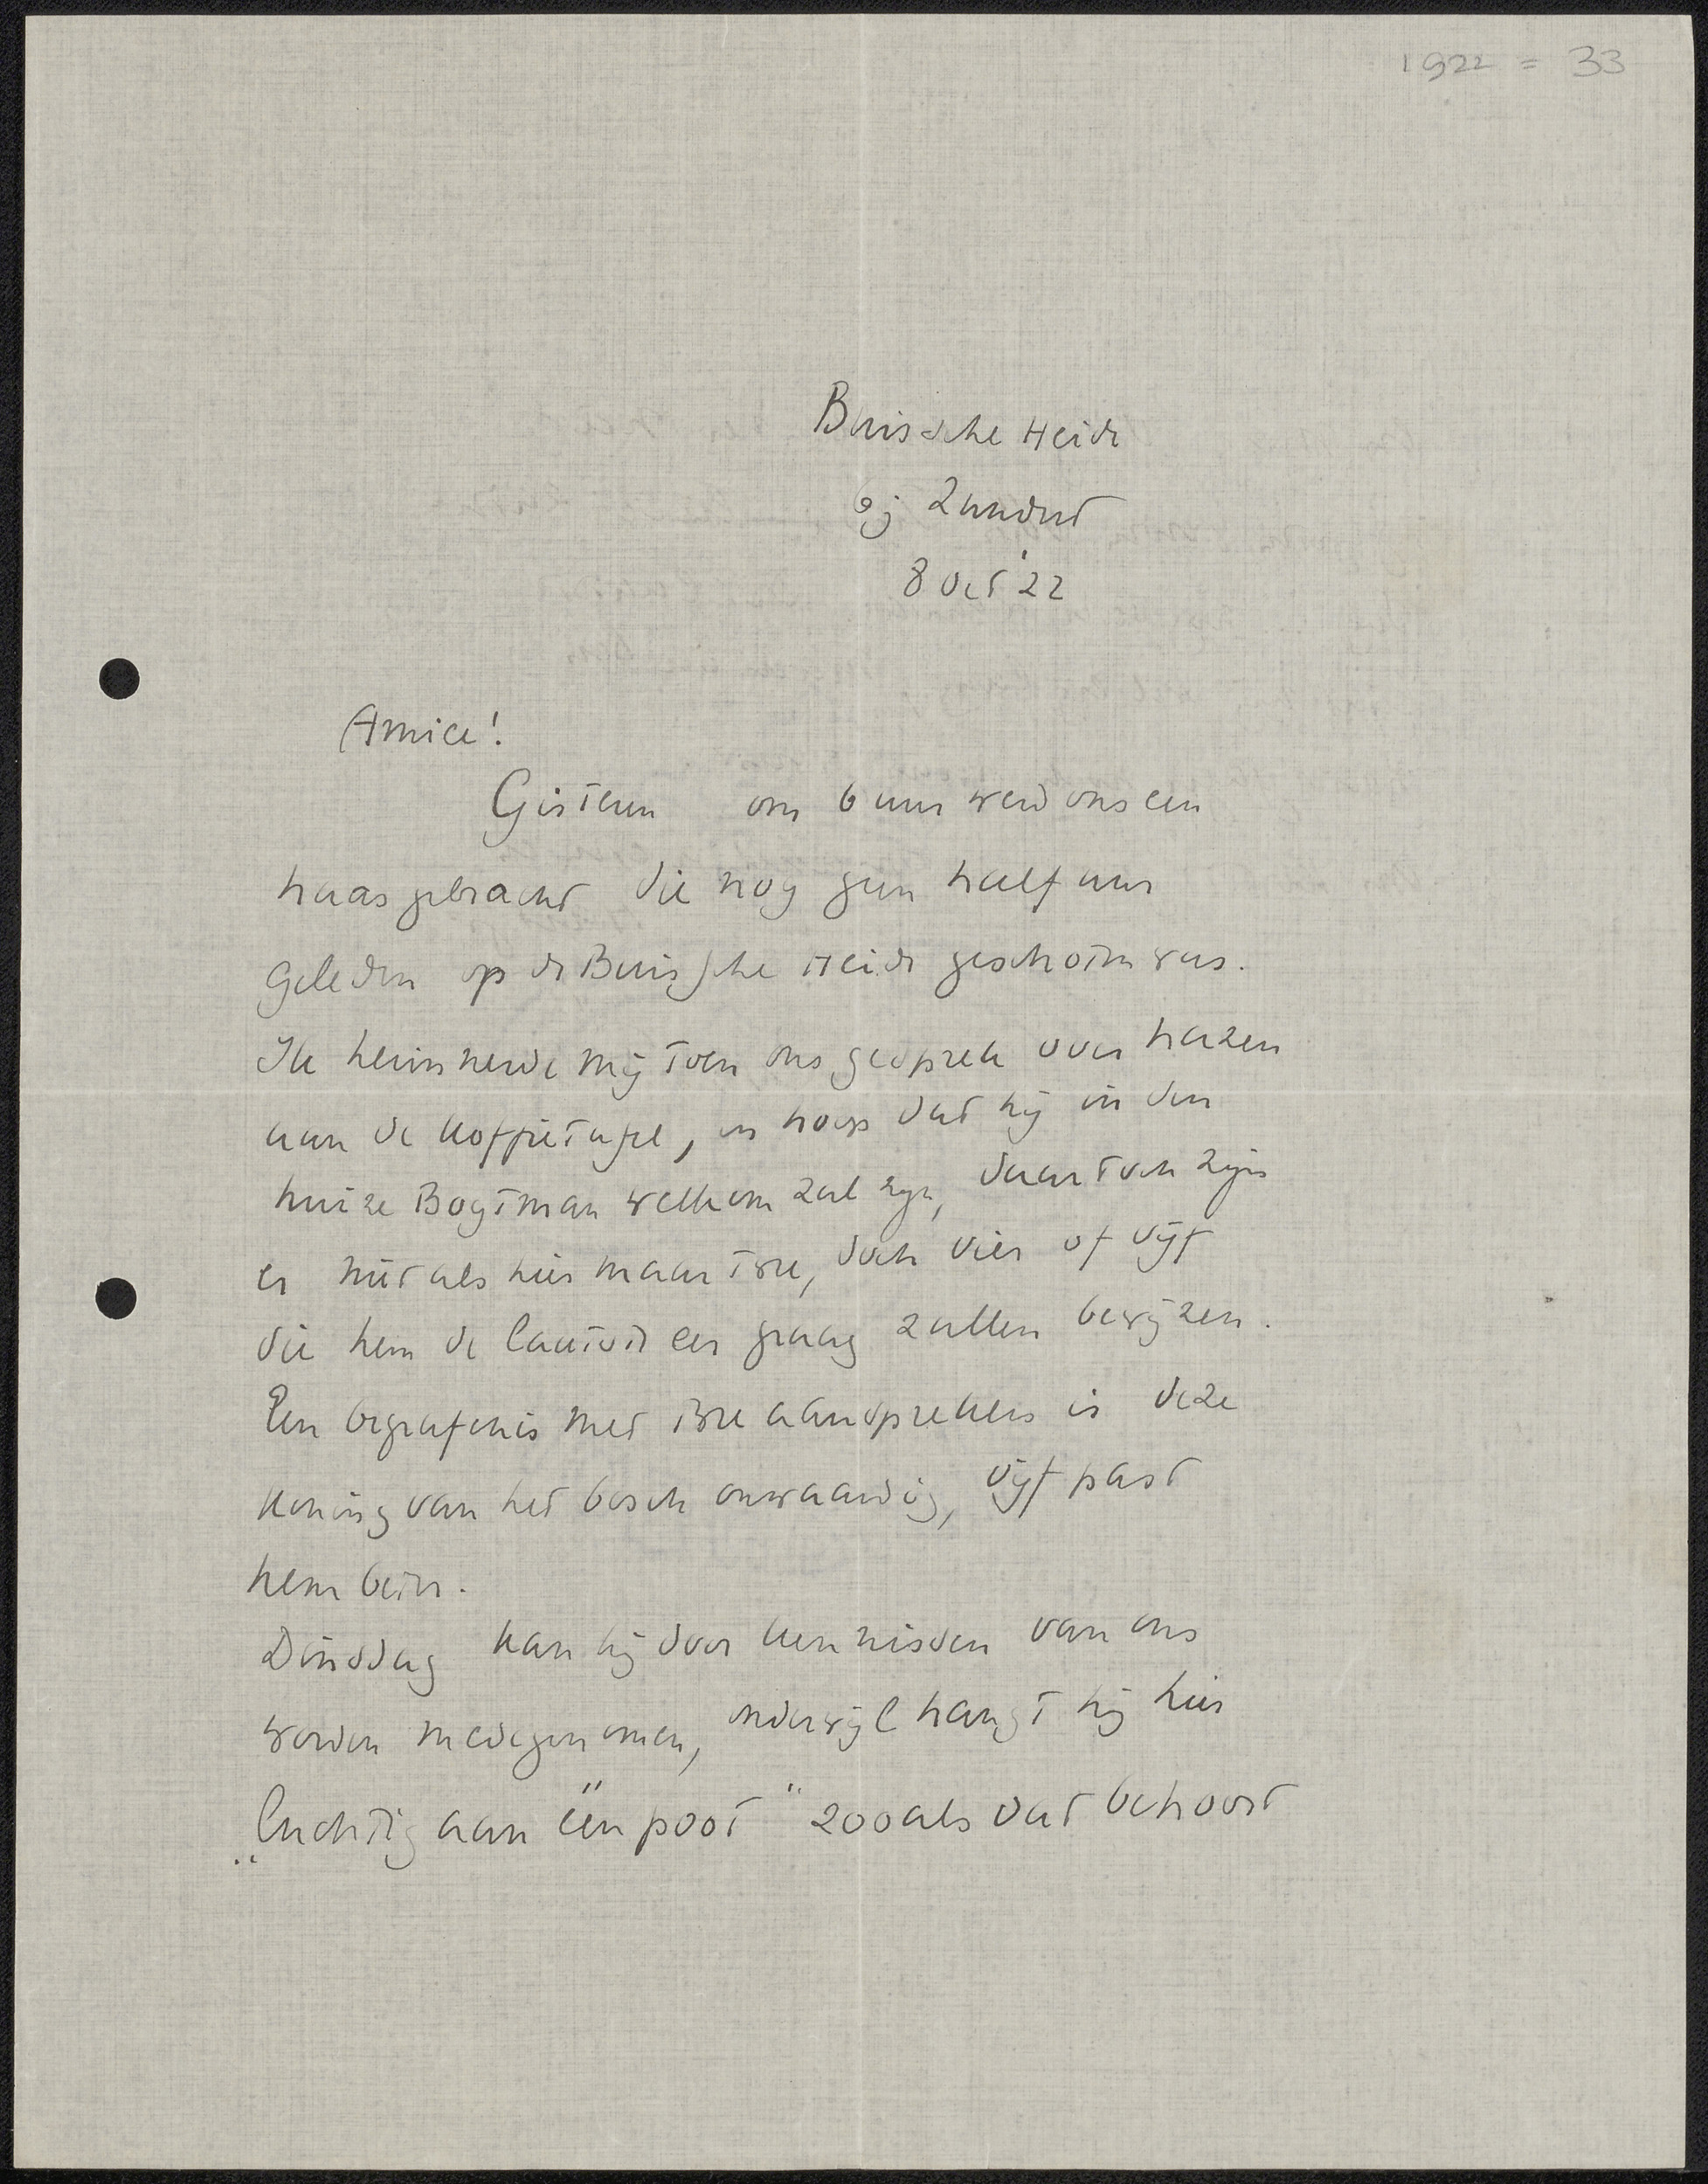 1922 = 33
Buissche Heide
bij Zundert
8 Oct '22
Amice!
Gisteren om 6 uur werd ons een
haas gebracht die nog geen half uur
geleden op de Buissche Heide geschoten was.
Ik herinnerde mij toen ons gesprek over hazen
aan de koffietafel, en hoop dat hij in den
huize Bogtman welkom zal zijn, daar toch zijn
er niet als hier maar twee, doch vier of vijf
die hem de laatste eer graag zullen bewijzen.
Een begrafenis met twee aansprekers is deze
koning van het bosch onwaardig, vijf past
hem beter.
Dinsdag kan hij door kennissen van ons
worden medegenomen, onderwijl hangt hij hier
„luchtig aan één poot" zooals dat behoort